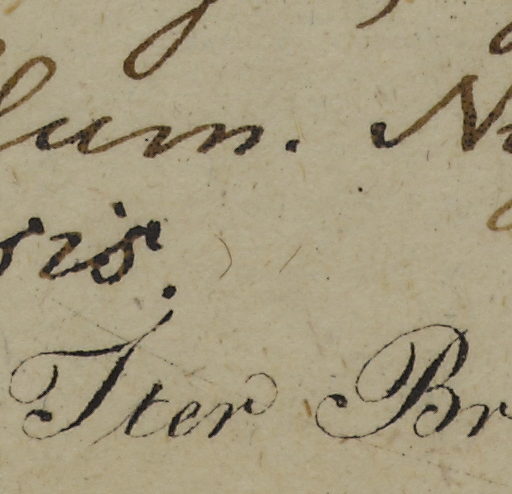 lum. N
sis.
Iter Br